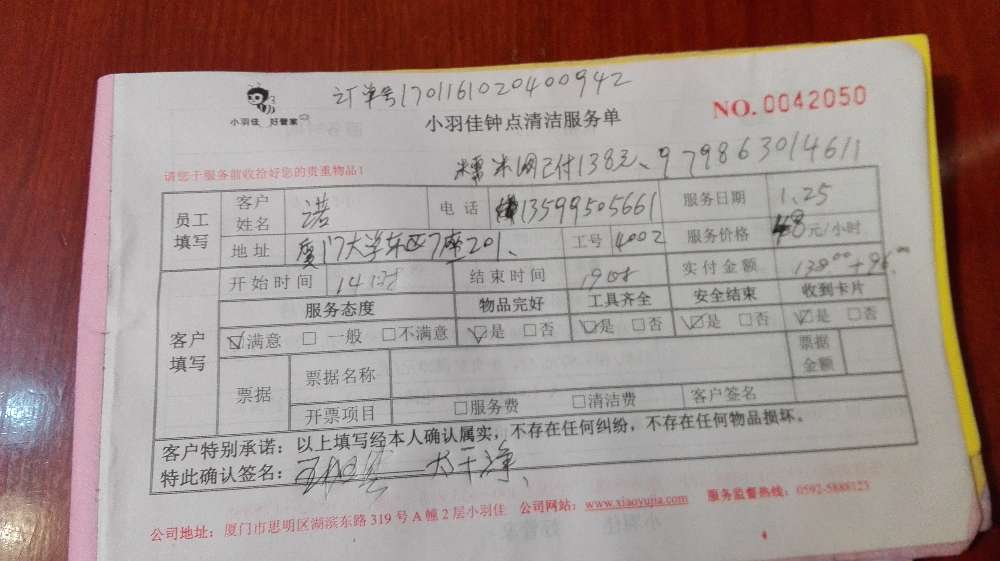 订单号1701161020400942
小羽佳 好管家
小羽佳钟点清洁服务单
NO.0042050
请您于服务前收拾好您的贵重物品!
糯米网已付138元、979863014611
员工填写 客户姓名 诺 电话 13599505661 服务日期 1.25
地址 厦门大学东区7座201、 工号 4002 服务价格 48元/小时
客户填写 开始时间 14时 结束时间 19时 实付金额 138.00+96.00
服务态度 物品完好 工具齐全 安全结束 收到卡片
☑满意 □一般 □不满意 ☑是 □否 ☑是 □否 ☑是 □否 ☑是 □否
票据 票据名称 票据金额
开票项目 □服务费 □清洁费 客户签名
客户特别承诺:以上填写经本人确认属实,不存在任何纠纷,不存在任何物品损坏。
特此确认签名: 干净、
公司地址:厦门市思明区湖滨东路319号A幢2层小羽佳 公司网站:www.xiaoyujia.com 服务监督热线:0592-5888123